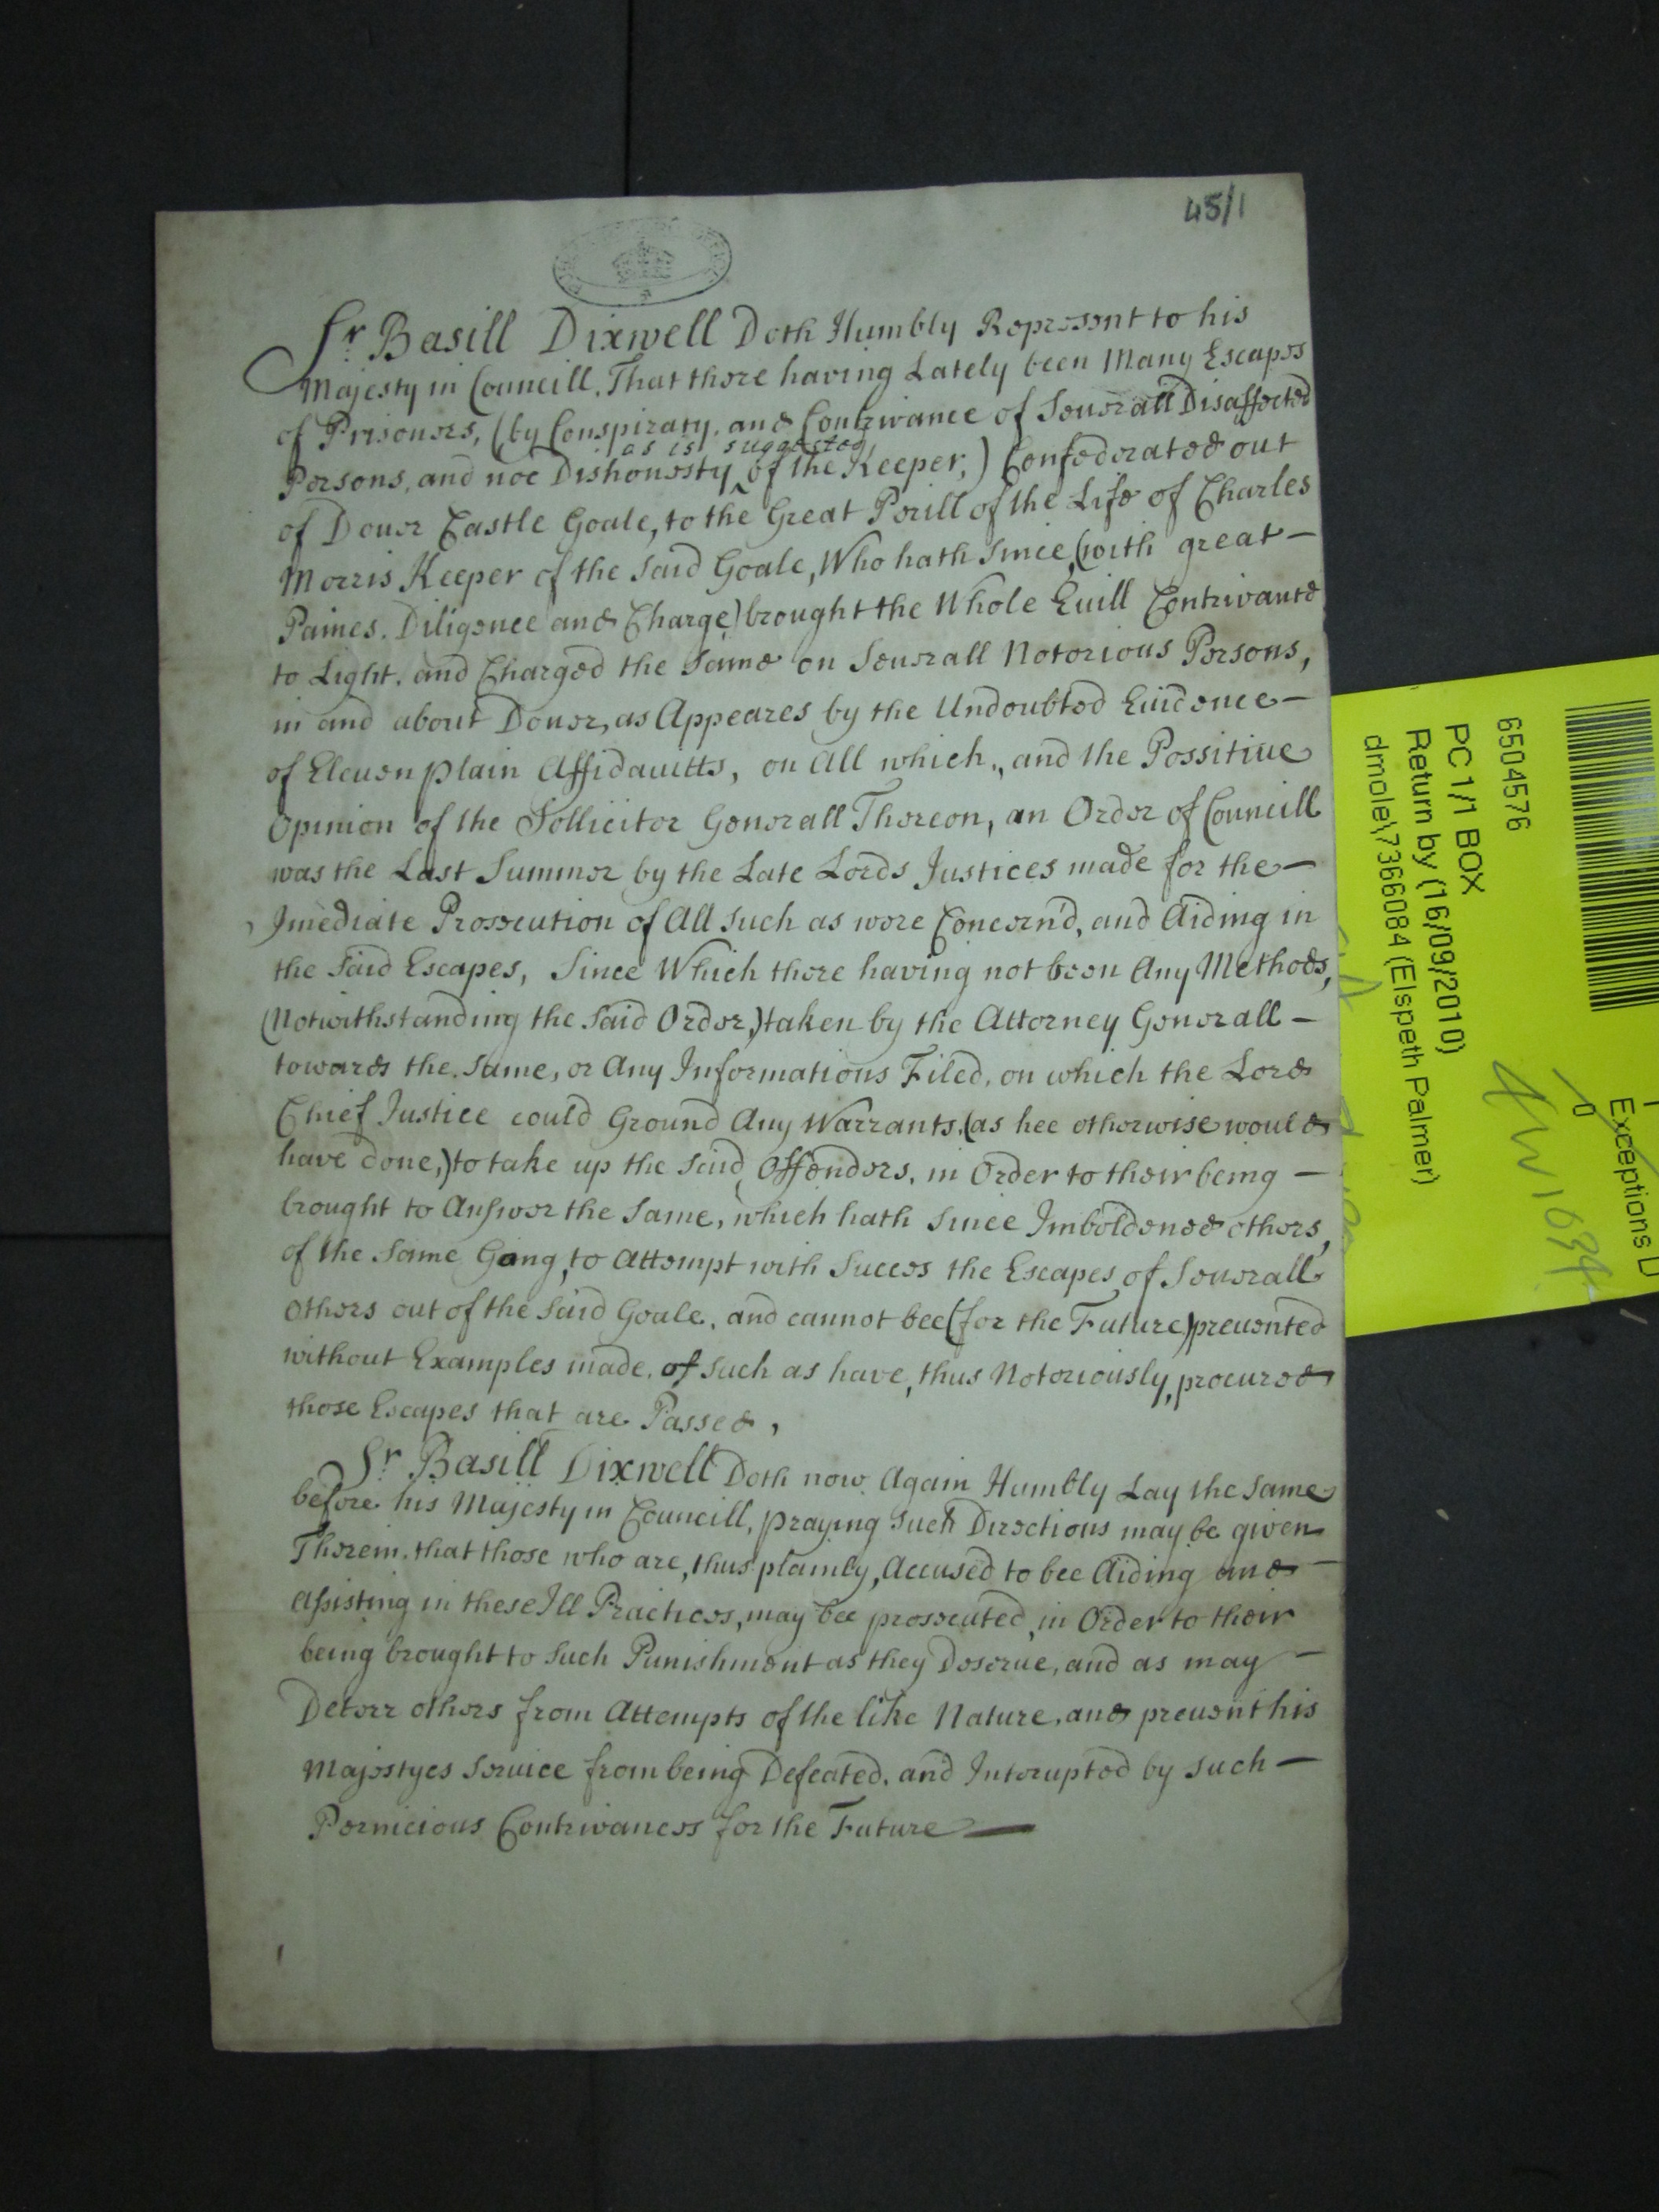 45/1
Sr Basill Dixwell Doth Humbly Represent to his
Majesty in Councill, That there having Lately been Many Escapes
of Prisoners, (by Conspiracy, and Contrivance of Severall Disaffected
as is suggested,
Persons, and noe Dishonesty ^ of the Keeper,) Confederated out
of Dover Castle Goale, to the Great Perill of the Life of Charles
Morris Keeper of the said Goale, Who hath since, (with great —
Paines, Diligence and Charge,) brought the Whole Evill Contrivance
to Light, and Charged the same on Severall Notorious Persons,
in and about Dover, as Appeares by the Undoubted Evidence —
of Eleven plain Affidavitts, on All which, and the Possitive
Opinion of the Sollicitor Generall Thereon, an Order of Councill
was the Last Summer by the Late Lords Justices made for the —
Imediate Prosecution of All such as were Concern'd, and Aiding in
the said Escapes, Since Which there having not been Any Methods,
(Notwithstanding the said Order,) taken by the Attorney Generall —
towards the same, or Any Informations Filed, on which the Lord
Chief Justice could Ground Any Warrants, (as hee otherwise would
have done,) to take up the said Offenders, in Order to their being —
brought to Answer the same, which hath since Imboldened others,
of the same Gang, to Attempt with Success the Escapes of Severall
others out of the said Goale, and cannot bee (for the Future) prevented
without Examples made, of such as have, thus Notoriously, procured
those Escapes that are Passed,
Sr Basill Dixwell Doth now Again Humbly Lay the same
before his Majesty in Councill, praying such Directions may be given
Therein, that those who are, thus plainly, Accused to bee Aiding and —
Assisting in these Ill Practices, may bee prosecuted, in Order to their
being brought to such Punishment as they Deserve, and as may —
Deterr others from Attempts of the like Nature, and prevent his
Majestyes Service from being Defeated, and Interupted by such —
Pernicious Contrivances for the Future —
6504576
PC 1/1 BOX
Return by (16/09/2010)
dmole\7366084 (Elspeth Palmer)
Exceptions
0